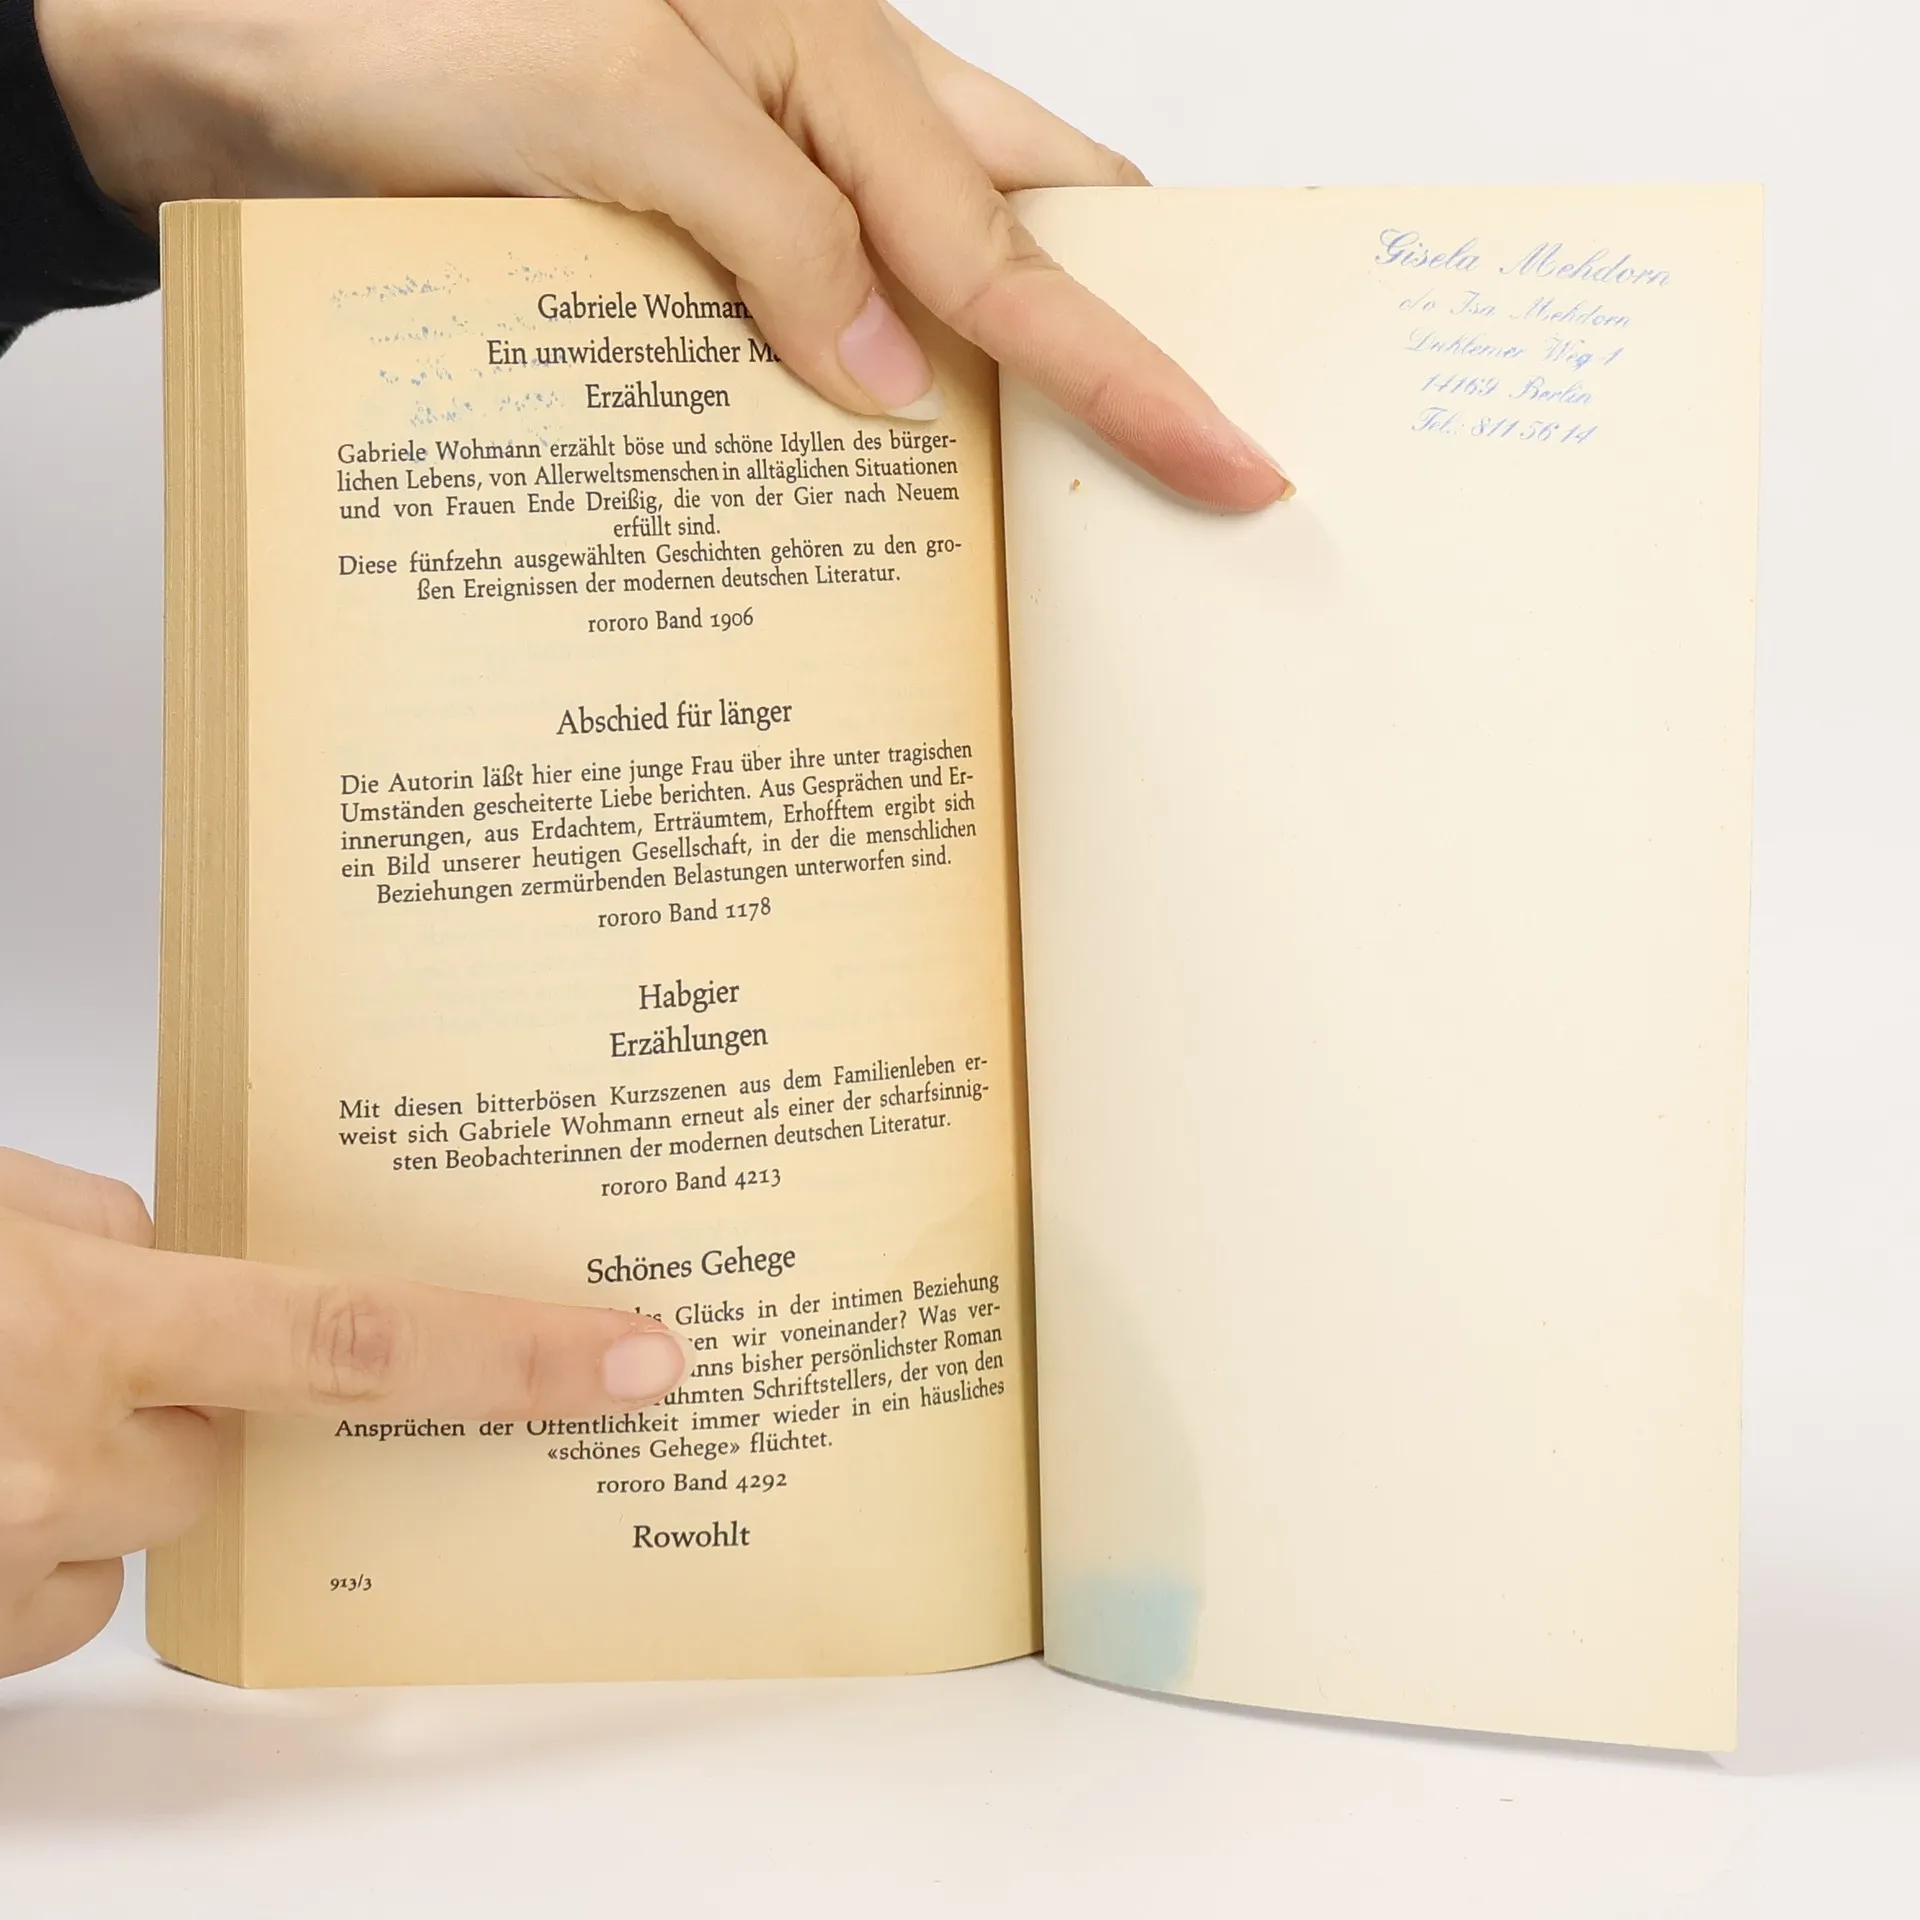 Gabriele Wohman
Ein unwiderstehlicher
Erzählungen
Gabriele Wohmann erzählt böse und schöne Idyllen des bürger-
lichen Lebens, von Allerweltsmenschen in alltäglichen Situationen
und von Frauen Ende Dreißig, die von der Gier nach Neuem
erfüllt sind.
Diese fünfzehn ausgewählten Geschichten gehören zu den gro-
ßen Ereignissen der modernen deutschen Literatur.
rororo Band 1906
Abschied für länger
Die Autorin läßt hier eine junge Frau über ihre unter tragischen
Umständen gescheiterte Liebe berichten. Aus Gesprächen und Er-
innerungen, aus Erdachtem, Erträumtem, Erhofftem ergibt sich
ein Bild unserer heutigen Gesellschaft, in der die menschlichen
Beziehungen zermürbenden Belastungen unterworfen sind.
rororo Band 1178
Habgier
Erzählungen
Mit diesen bitterbösen Kurzszenen aus dem Familienleben er-
weist sich Gabriele Wohmann erneut als einer der scharfsinnig-
sten Beobachterinnen der modernen deutschen Literatur.
rororo Band 4213
Schönes Gehege
Glücks in der intimen Beziehung
wir voneinander? Was ver-
bisher persönlichster Roman
Schriftstellers, der von den
Ansprüchen der Öffentlichkeit immer wieder in ein häusliches
«schönes Gehege» flüchtet.
rororo Band 4292
Rowohlt
913/3
Gisela Mehdorn
c/o Isa Mehdorn
Weg 1
14169 Berlin
Tel.: 811 56 14